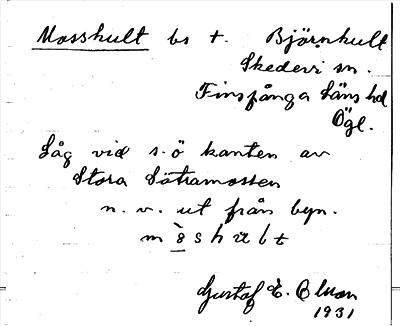 Mosshult bs t. Björnhult
Skedevi sn.
Finspånga Läns hd
Ögl.
Låg vid s.ö kanten av
Stora Sätramossen
n.v. ut från byn.
Gustaf E. Olson
1931